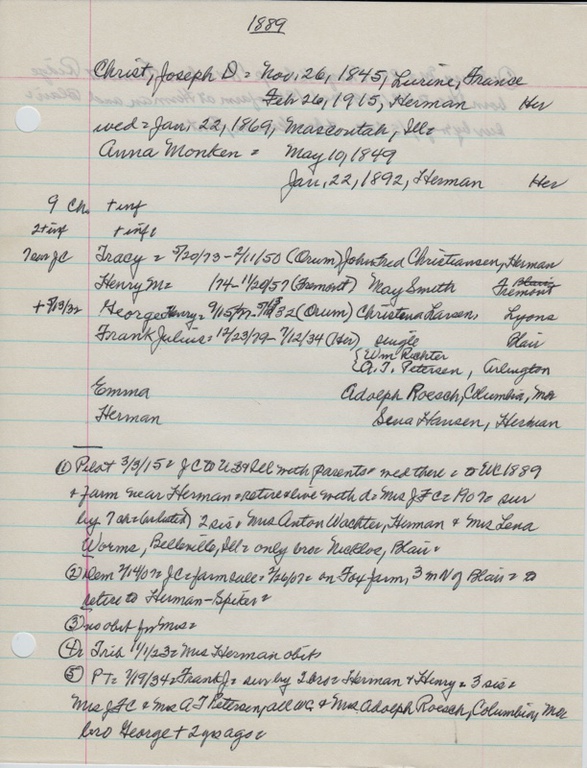 1889
Christ, Joseph D = Nov. 26, 1845, Lurine, France
Feb 26, 1915, Herman Her
wed = Jan. 22, 1869, Mascoutah, Ill=
Anna Monken = May 10, 1849
Jan. 22, 1892, Herman Her
9 Ch. + inf
2 + inf + inf =
7 sur JC Tracy = 5/20/73 - 2/11/50 (Orum) John Fred Christiansen, Herman
Henry M = /74 - 11/20/57 (Fremont) May Smith Blair Fremont
+ 5/13/32 George Henry = 9/15/77 - 5/13/32 (Orum) Christena Larsen Lyons
Frank Julius = 12/23/79 - 7/12/34 (Her) single Blair
{Wm Richter
{A. T. Petersen, Arlington
Emma Adolph Roesch, Columbia, Mo
Herman Sena Hansen, Herman
① Pilot 3/3/15 = JC to US & Ill with parents = wed there = to WC 1889
+ farm near Herman = retire & live with d = Mrs J F C = 1907 = sur
by 7 ch = (as listed) 2 sis = Mrs Anton Wachter, Herman + Mrs Lena
Worms, Belleville, Ill = only bro = Nicklos, Blair =
② Dem 2/14/07 = JC = farm sale = 2/26/07 = on Fox farm, 3 m N of Blair = to
retire to Herman - Spiker =
③ no obit for Mrs =
④ Trib 11/1/23 = Mrs Herman obit
⑤ PT = 7/19/34 = Frank J = sur by 2 bro = Herman + Henry = 3 sis =
Mrs J F C + Mrs A T Petersen, all WC + Mrs. Adolph Roesch, Columbia, Mo
bro George + 2 yrs ago =